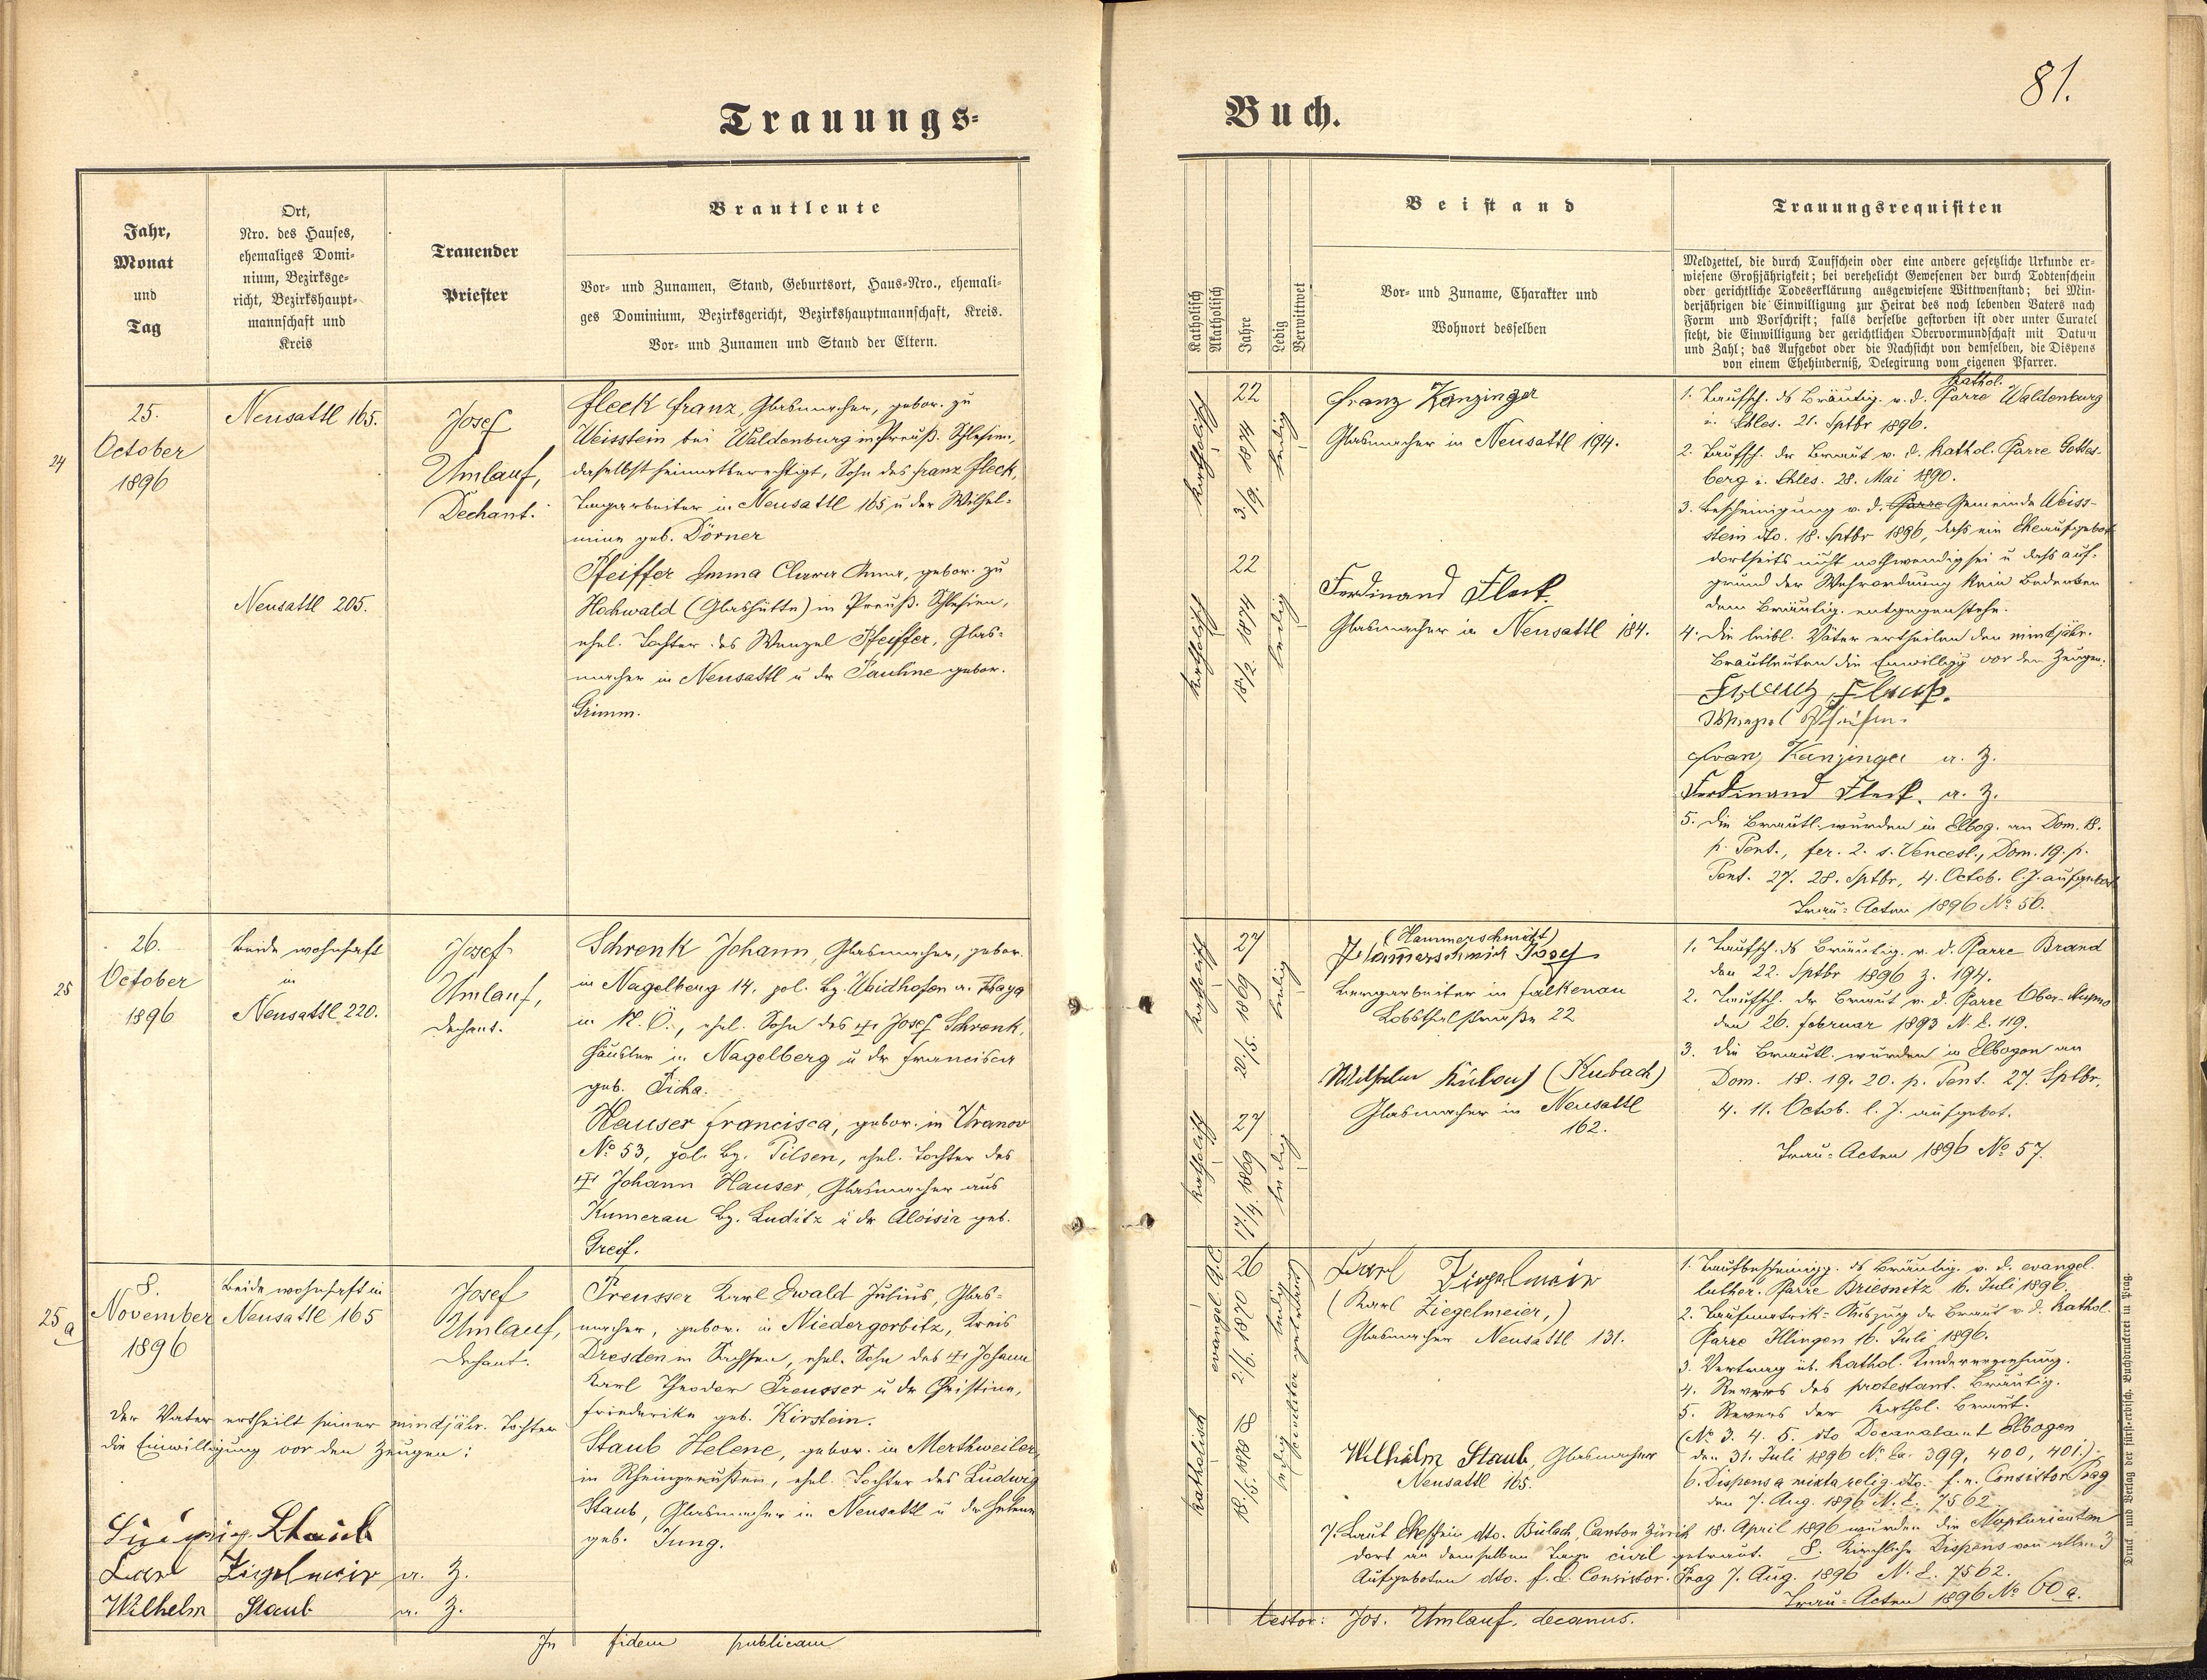 81.
Trauungs-
Buch.
Jahr,
Monat
und
Tag
Ort,
Nro. des Hauses,
ehemaliges Domi-
nium, Bezirksge-
richt, Bezirkshaupt-
mannschaft und
Kreis
Trauender
Priester
Brautleute
Vor- und Zunamen, Stand, Geburtsort, Haus-Nro., ehemali-
ges Dominium, Bezirksgericht, Bezirkshauptmannschaft, Kreis.
Vor- und Zunamen und Stand der Eltern.
Katholisch
Akatholisch
Jahre
Ledig
Verwittwet
Beistand
Vor- und Zuname, Charakter und
Wohnort desselben
Trauungsrequisiten
Meldzettel, die durch Taufschein oder eine andere gesetzliche Urkunde er-
wiesene Großjährigkeit; bei verehelicht Gewesenen der durch Todtenschein
oder gerichtliche Todeserklärung ausgewiesene Wittwenstand; bei Min-
derjährigen die Einwilligung zur Heirat des noch lebenden Vaters nach
Form und Vorschrift; falls derselbe gestorben ist oder unter Curatel
steht, die Einwilligung der gerichtlichen Obervormundschaft mit Datum
und Zahl; das Aufgebot oder die Nachsicht von demselben, die Dispens
von einem Ehehinderniß, Delegirung vom eigenen Pfarrer.
24
25.
October
1896
Neusattl 165.
Neusattl 205.
Josef
Umlauf,
Dechant.
Fleck Franz, Glasmacher, gebor. zu
Weisstein bei Waldenburg in Preuß. Schlesien,
daselbst heimatberechtigt, Sohn des Franz Fleck,
Tagarbeiter in Neusattl 165 u der Wilhel-
mine geb. Dörner
Pfeiffer Emma Clara Anna, gebor. zu
Hochwald (Glashütte) in Preuß. Schlesien,
ehel. Tochter des Wenzel Pfeiffer, Glas-
macher in Neusattl u der Pauline gebor.
Grimm.
katholisch
22
3./9. 1874
ledig
katholisch
22
18./2. 1874
ledig
Franz Kanzinger
Glasmacher in Neusattl 194.
Ferdinand Fleck
Glasmacher in Neusattl 184.
kathol.
1. Taufsch. ds Bräutig. v. d. Pfarre Waldenburg
i. Schles. 21. Sptbr 1896.
2. Taufsch. der Braut v. d. kathol. Pfarre Gottes-
berg i. Schles. 28. Mai 1890.
3. Bescheinigung v. d. Pfarre Gemeinde Weiss-
stein dto. 18. Sptbr 1896, daß ein Eheaufgebot
dortseits nicht nothwendig sei u daß auf-
grund der Wehrordnung kein Bedenken
dem Bräutig. entgegenstehe.
4. Die leibl. Väter ertheilen den mindjähr.
Brautleuten die Einwilligg vor den Zeugen:
Franz Fleck.
Wenzel Pfeifer.
Franz Kanzinger a. Z.
Ferdinand Fleck. a. Z.
5. Die Brautl. wurden in Elbog. an Dom. 18.
p. Pent., fer. 2. s. Vencesl., Dom. 19. p.
Pent. 27. 28. Sptbr, 4. Octob. l. J. aufgebot.
Trau-Acten 1896 No 56.
25
26.
October
1896
beide wohnhaft
in
Neusattl 220.
Josef
Umlauf,
Dechant.
Schrenk Johann, Glasmacher, gebor.
in Nagelberg 14. pol. Bz. Waidhofen a. Thaya
in N. Ö., ehel. Sohn des † Josef Schrenk,
Häusler in Nagelberg u der Francisca
geb. Ticha.
Hauser Francisca, gebor. in Vranov
No 53, pol. Bz. Pilsen, ehel. Tochter des
† Johann Hauser, Glasmacher aus
Kumerau Bz. Luditz u der Aloisia geb.
Greif.
katholisch
27
20./5. 1869
ledig
katholisch
27
17./4. 1869
ledig
(Hammerschmidt)
Hamerschmid Josef
Bergarbeiter in Falkenau
Lobsthalstraße 22
Wilhelm Kubach (Kubach)
Glasmacher in Neusattl
162.
1. Taufsch. ds Bräutig. v. d. Pfarre Brand
den 22. Sptbr 1896 Z. 194.
2. Taufsch. der Braut v. d. Pfarre Ober-
den 26. Februar 1893 N. E. 119.
3. Die Brautl. wurden in Elbogen an
Dom. 18. 19. 20. p. Pent. 27. Sptbr,
4. 11. Octob. l. J. aufgebot.
Trau-Acten 1896 No 57.
25 a
8.
November
1896
Beide wohnhaft in
Neusattl 165
Josef
Umlauf,
Dechant.
Preusser Karl Ewald Julius, Glas-
macher, gebor. in Niedergorbitz, Kreis
Dresden in Sachsen, ehel. Sohn des † Johann
Karl Theodor Preusser u der Christine,
Friederike geb. Kirstein.
Staub Helene, gebor. in Merthweiler,
in Rheinpreußen, ehel. Tochter des Ludwig
Staub, Glasmacher in Neusattl u der Helene
geb. Jung.
Der Vater ertheilt seiner mindjähr. Tochter
die Einwilligung vor den Zeugen:
Ludwig Staub
Karl Ziegelmeir a. Z.
Wilhelm Staub a. Z.
evangel. A. C.
26
2./6. 1870
ledig
katholisch
18
18./5. 1878
ledig
Karl Ziegelmeir
(Karl Ziegelmeier,)
Glasmacher Neusattl 131.
Wilhelm Staub, Glasmacher
Neusattl 165.
1. Taufbescheinigg. ds Bräutig. v. d. evangel.
luther. Pfarre Briesnitz 16. Juli 1896.
2. Taufmatrik-Auszug der Braut v. d. kathol.
Pfarre Illingen 16. Juli 1896.
3. Vertrag üb. kathol. Kindererziehung.
4. Revers des protestant. Bräutig.
5. Revers der kathol. Braut.
(No 3. 4. 5. dto Decanalamt Elbogen
den 31. Juli 1896 No 399, 400, 401.)
6. Dispens a mixta relig. dto. f. e. Consistor Prag
den 7. Aug. 1896 N. E. 7562.
7. Laut Eheschein dto. Bülach, Canton Zürich 18. April 1896 wurden die Nupturienten
dort an demselben Tage civil getraut. 8. Kirchliche Dispens von allen 3
Aufgeboten dto. f. e. Consistor. Prag 7. Aug. 1896 N. E. 7562.
Trau-Acten 1896 No 60 a.
In fidem publicam
testor: Jos. Umlauf, decanus.
Druck und Verlag der fürst-erzbisch. Buchdruckerei in Prag.